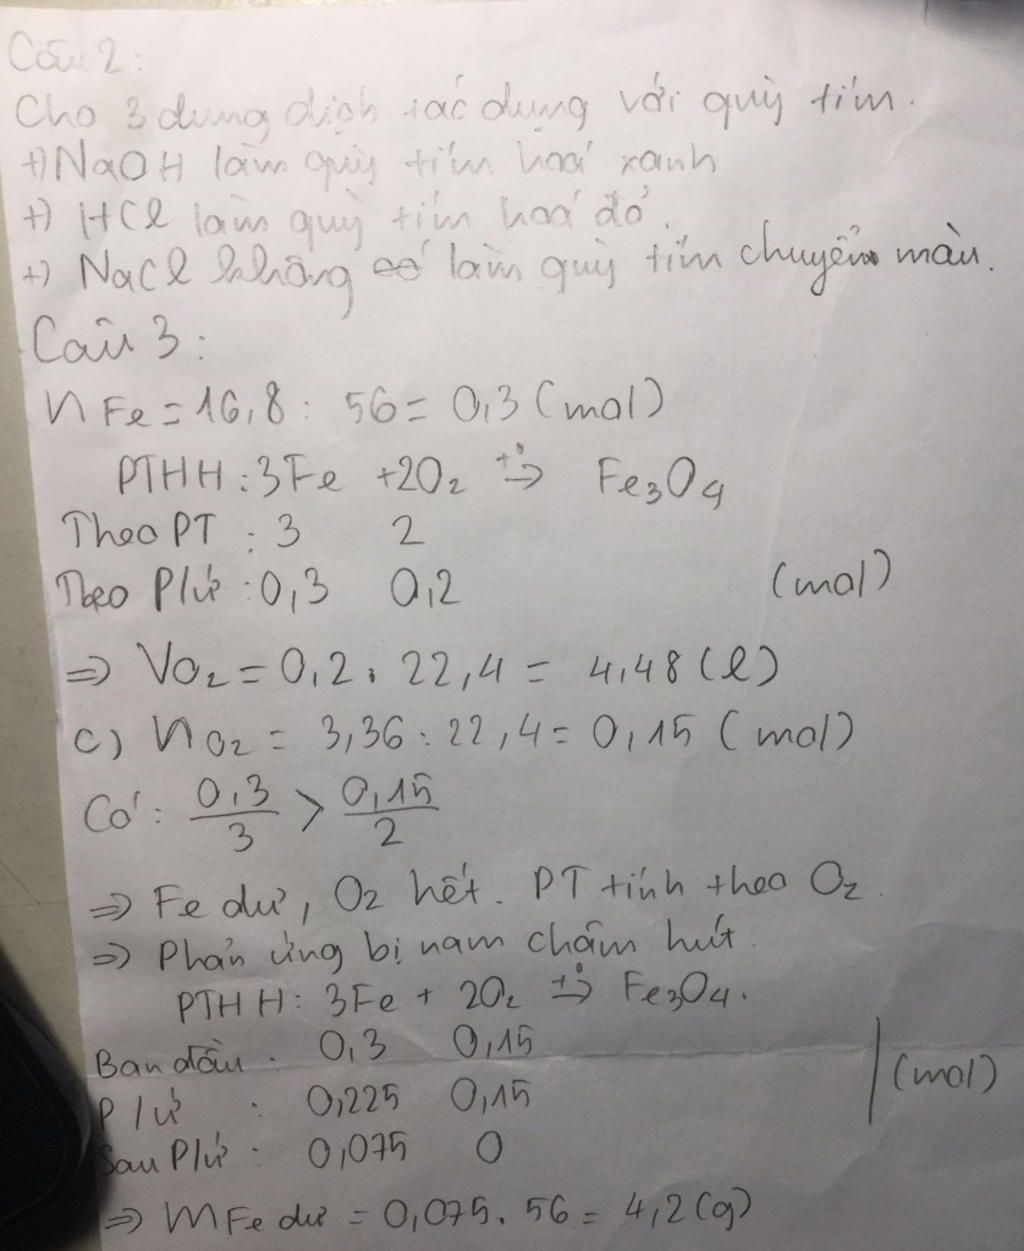 Câu 2:
Cho 3 dung dịch tác dụng với quỳ tím.
+) NaOH làm quỳ tím hoá xanh
+) HCl làm quỳ tím hoá đỏ.
+) NaCl không làm quỳ tím chuyển màu.
Câu 3:
nFe = 16,8 : 56 = 0,3 (mol)
PTHH: 3Fe + 2O₂ t°→ Fe₃O₄
Theo PT : 3 2
Theo P/ứ : 0,3 0,2 (mol)
=> VO₂ = 0,2 . 22,4 = 4,48 (l)
c) nO₂ = 3,36 : 22,4 = 0,15 (mol)
Có: 0,3/3 > 0,15/2
=> Fe dư, O₂ hết. PT tính theo O₂.
=> Phản ứng bị nam châm hút.
PTHH: 3Fe + 2O₂ t°→ Fe₃O₄.
Ban đầu : 0,3 0,15
P/ứ : 0,225 0,15 | (mol)
Sau P/ứ : 0,075 0
=> mFe dư = 0,075 . 56 = 4,2 (g)